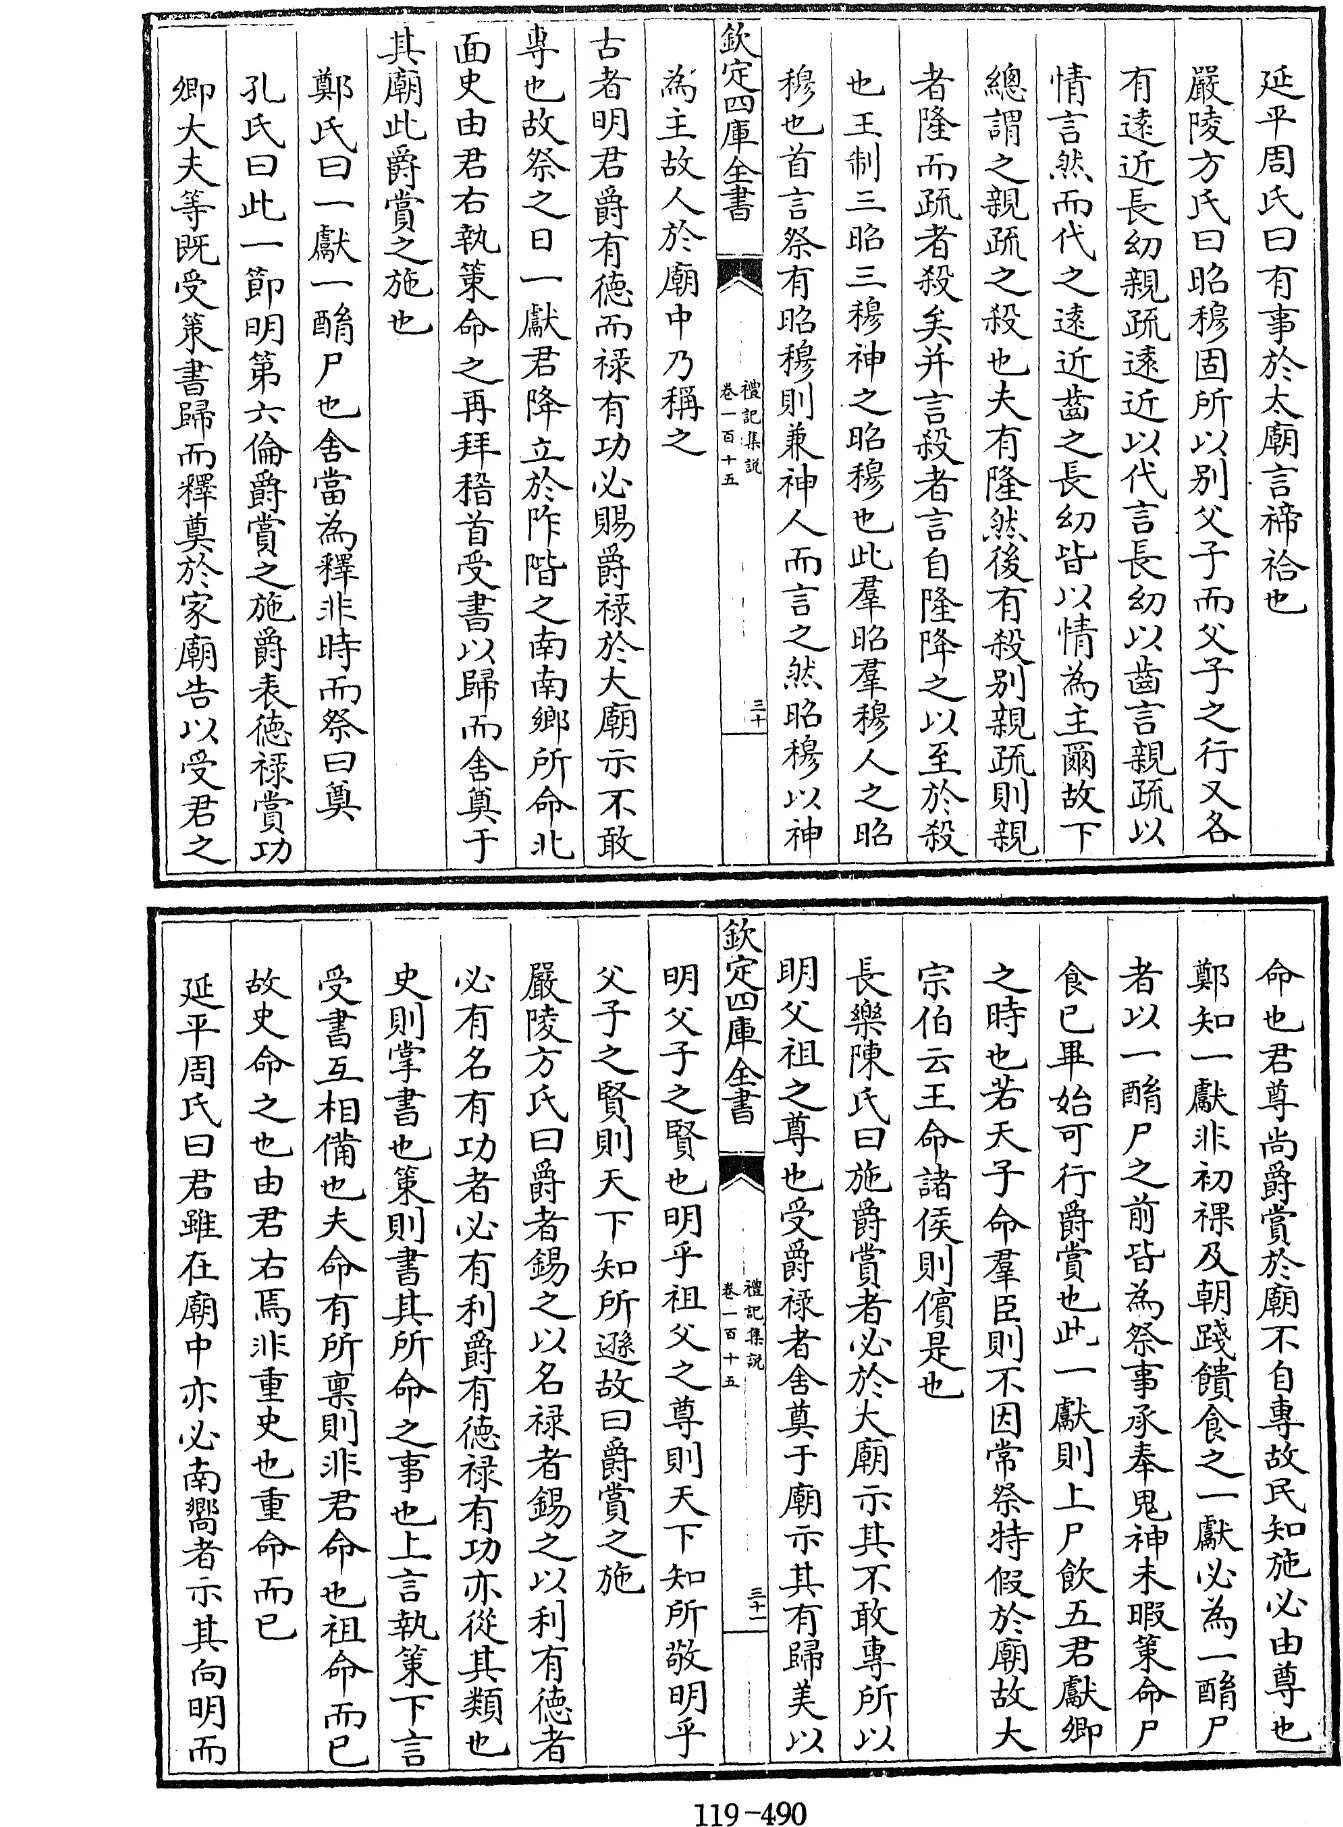 延平周氏曰有事於太廟言禘祫也
嚴陵方氏曰昭穆固所以别父子而父子之行又各
有逺近長幼親疏逺近以代言長幼以齒言親疏以
情言然而代之逺近齒之長幼皆以情為主爾故下
總謂之親疏之殺也夫有隆然後有殺别親疏則親
者隆而疏者殺矣并言殺者言自隆降之以至於殺
也王制三昭三穆神之昭穆也此羣昭羣穆人之昭
穆也首言祭有昭穆則兼神人而言之然昭穆以神
欽定四庫全書
禮記集説
卷一百十五
三十
為主故人於廟中乃稱之
古者明君爵有徳而禄有功必賜爵禄於大廟示不敢
專也故祭之日一獻君降立於阼階之南南鄉所命北
面史由君右執䇿命之再拜稽首受書以歸而舍奠于
其廟此爵賞之施也
鄭氏曰一獻一酳尸也舍當為釋非時而祭曰奠
孔氏曰此一節明第六倫爵賞之施爵表徳禄賞功
卿大夫等既受䇿書歸而釋奠於家廟告以受君之
命也君尊尚爵賞於廟不自專故民知施必由尊也
鄭知一獻非初祼及朝踐饋食之一獻必為一酳尸
者以一酳尸之前皆為祭事承奉鬼神未暇䇿命尸
食已畢始可行爵賞也此一獻則上尸飲五君獻卿
之時也若天子命羣臣則不因常祭特假於廟故大
宗伯云王命諸侯則儐是也
長樂陳氏曰施爵賞者必於大廟示其不敢專所以
明父祖之尊也受爵禄者舍奠于廟示其有歸美以
欽定四庫全書
禮記集説
卷一百十五
三十一
明父子之賢也明乎祖父之尊則天下知所敬明乎
父子之賢則天下知所遜故曰爵賞之施
嚴陵方氏曰爵者錫之以名禄者錫之以利有徳者
必有名有功者必有利爵有徳禄有功亦從其類也
史則掌書也䇿則書其所命之事也上言執䇿下言
受書互相備也夫命有所禀則非君命也祖命而已
故史命之也由君右焉非重史也重命而已
延平周氏曰君雖在廟中亦必南嚮者示其向明而
119-490